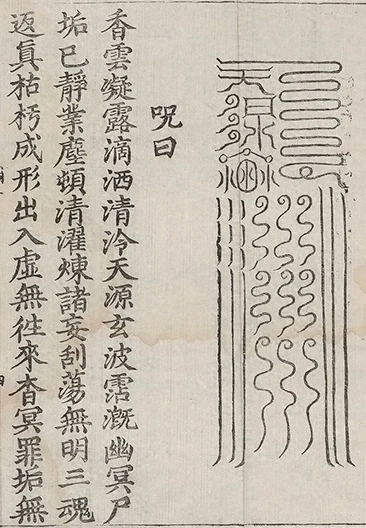 呪曰
香雲凝露滴洒清泠天源玄波霑溉幽冥尸
垢已靜業塵頓清濯煉諸妄刮蕩無明三魂
返真枯朽成形出入虛無往來杳冥罪垢無